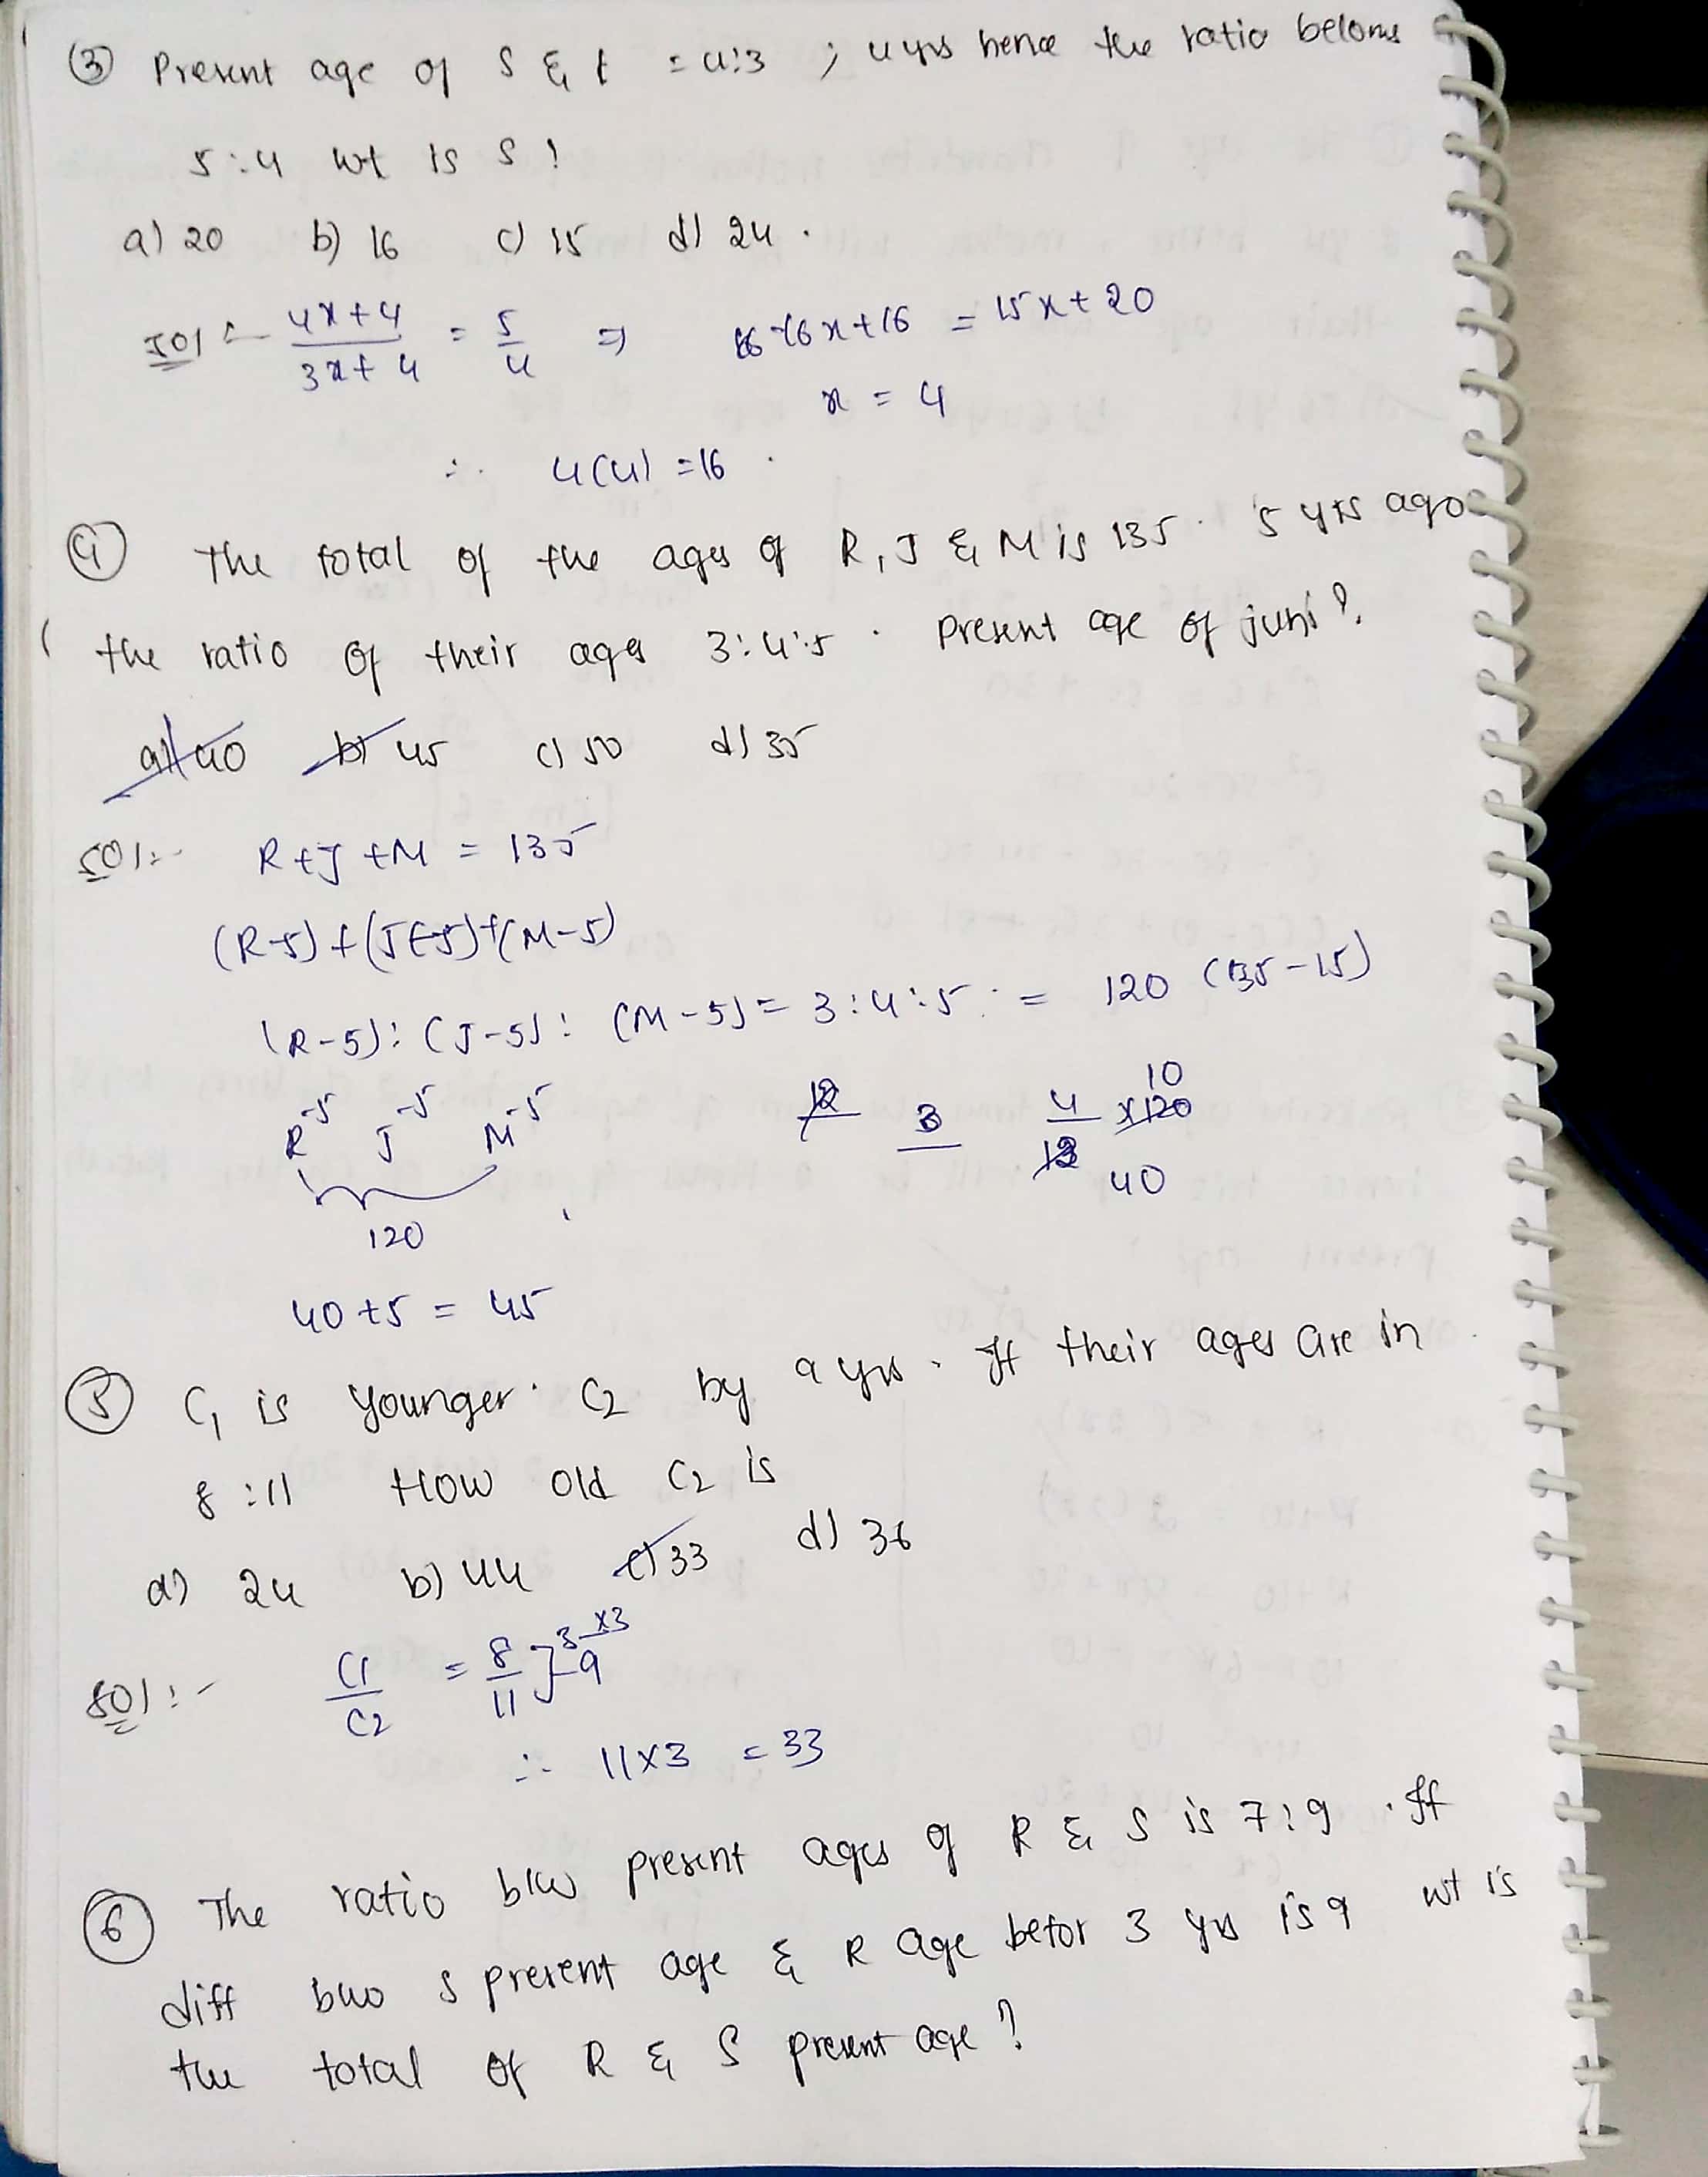 ③ Present age of S & t = 4:3 ; 4 yrs hence the ratio beloms
5:4 wt is S?
a) 20 b) 16 c) 15 d) 24.
Sol:- 4x+4/3x+4 = 5/4 ⇒ 16x+16 = 15x+20
x = 4
∴ 4(4) = 16.
④ The total of the ages of R, J & M is 135. 5 yrs ago
the ratio of their ages 3:4:5. Present age of juhi?
a) 40 b) 45 c) 50 d) 35
Sol:- R+J+M = 135
(R-5)+(J-5)+(M-5)
(R-5):(J-5):(M-5) = 3:4:5 = 120 (135-15)
R-5 J-5 M-5 12 3 4/12 x 120 10
40
120
40+5 = 45
⑤ C1 is younger C2 by 9 yrs. If their ages are in
8:11 How old C2 is
a) 24 b) 44 c) 33 d) 36
Sol:- C1/C2 = 8/11 } 3-9 x3
∴ 11x3 = 33
⑥ The ratio b/w present ages of R & S is 7:9. If
diff bwo S present age & R age befor 3 yrs is 9 wt is
the total of R & S present age?